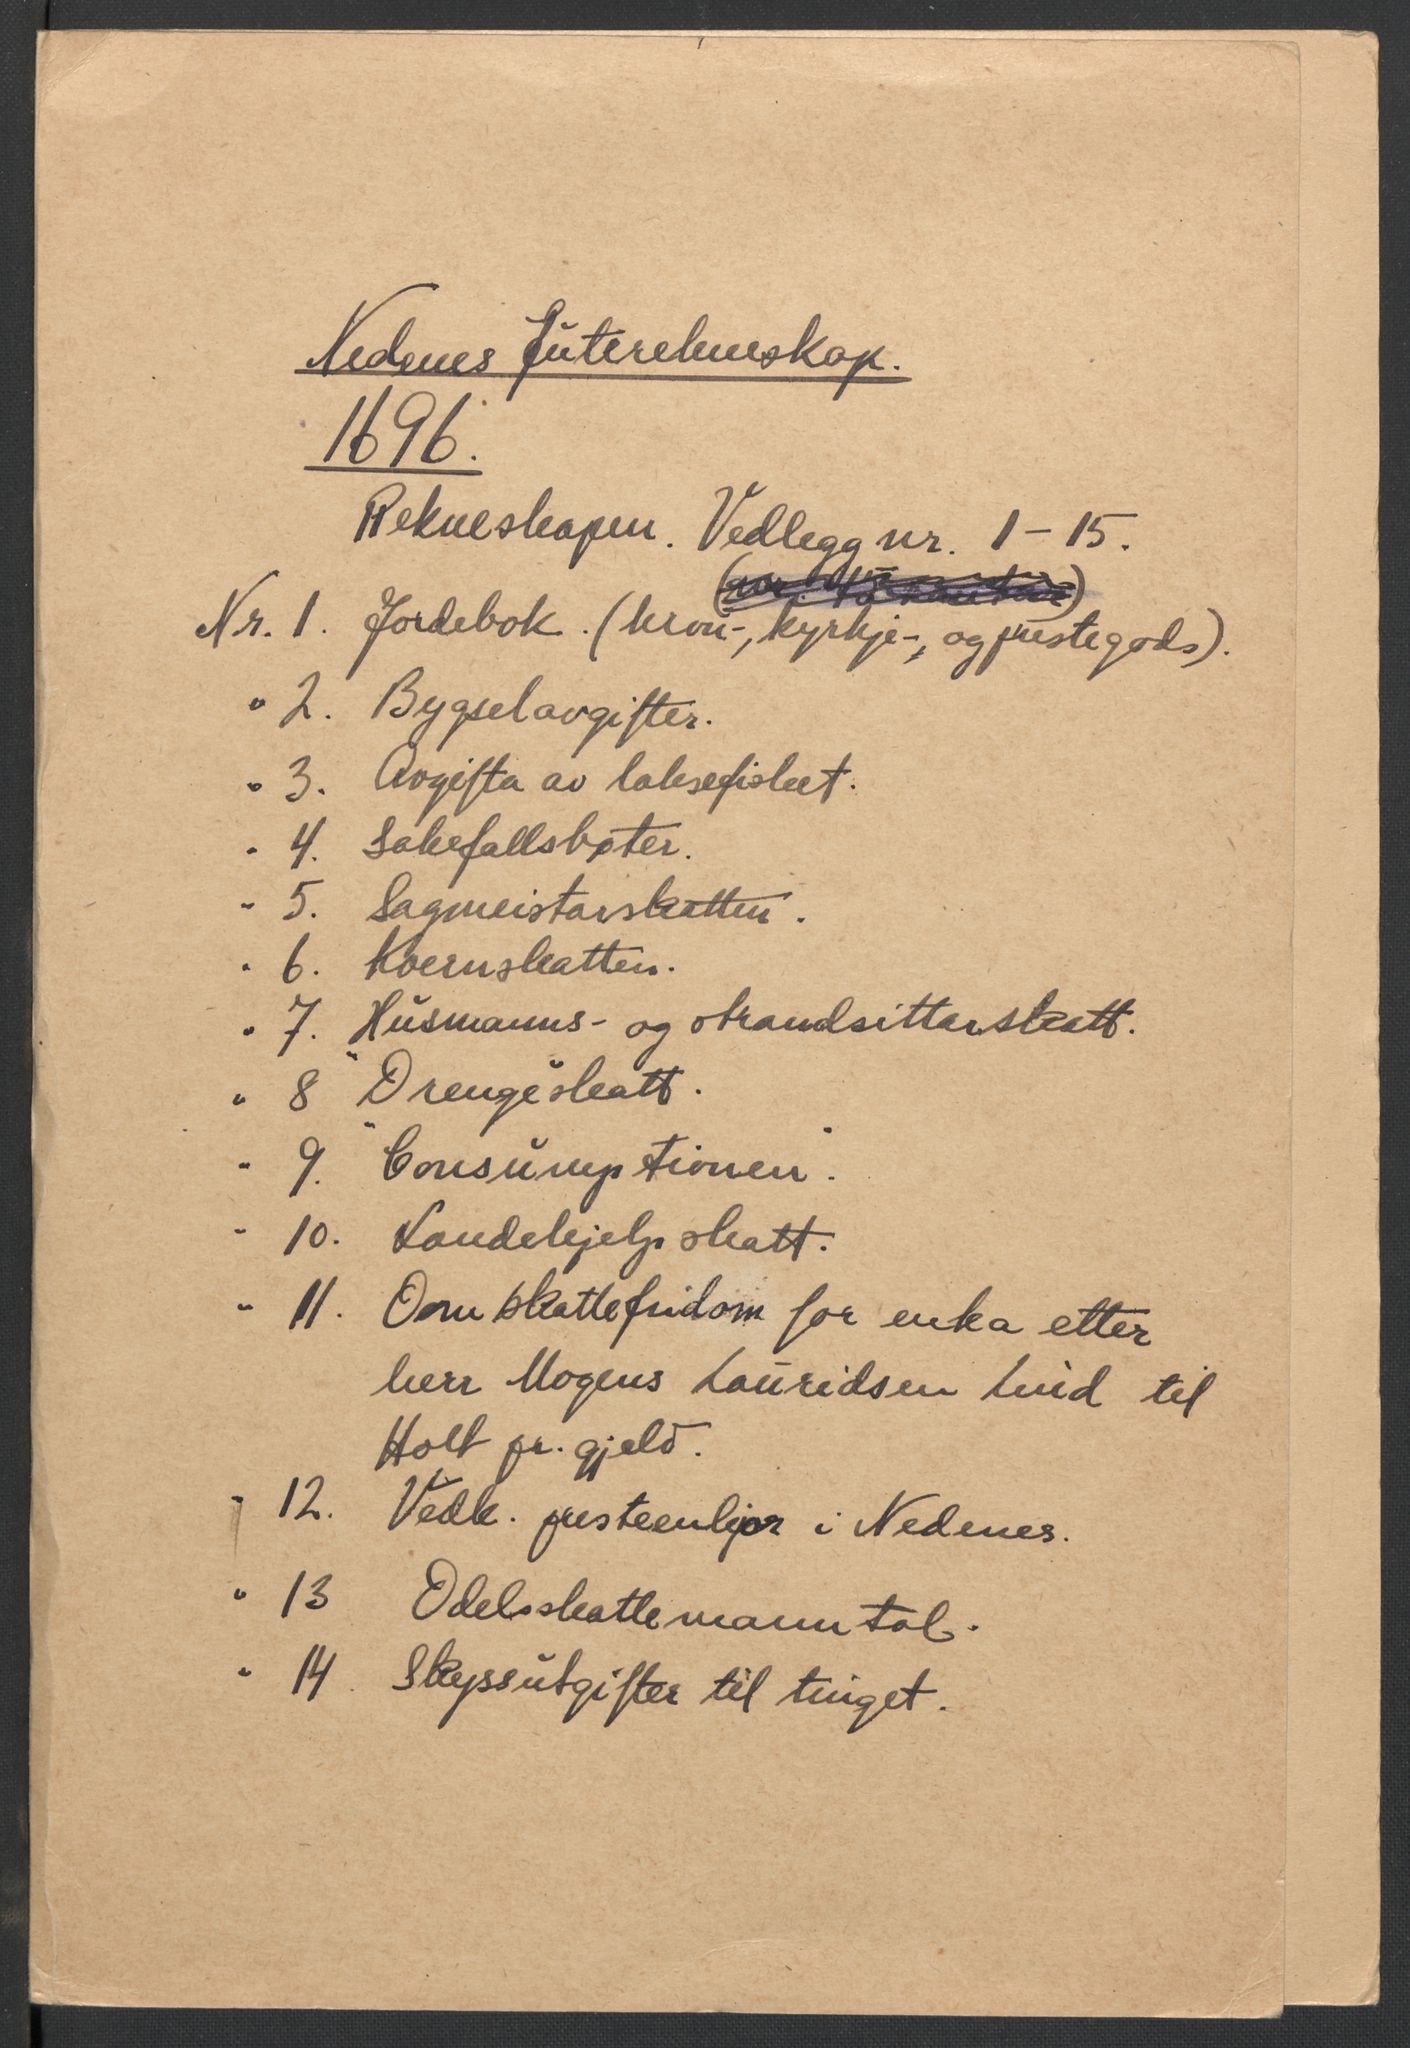 Nedenes futerekneskap.
1696.
Rekneskapen. Vedlegg nr. 1-15.
Nr. 1. Jordebok. (kron-, kyrkje-, og prestegods).
" 2. Bygselavgifter.
" 3. Avgifta av laksefisket.
" 4. Sakefallsbøter.
" 5. Sagmeistarskatten.
" 6. Kvernskatten.
" 7. Husmanns- og strandsittarskatt.
" 8 "Drengeskatt".
" 9. "Consumptionen".
" 10. Landehjelpskatt.
" 11. Om skattefridom for enka etter
herr Mogens Lauridsen Lind til
Holt pr.gjeld.
" 12. Vedk. presteenkjor i Nedenes.
" 13 Odelsskattemanntal.
" 14. Skyssutgifter til tinget.